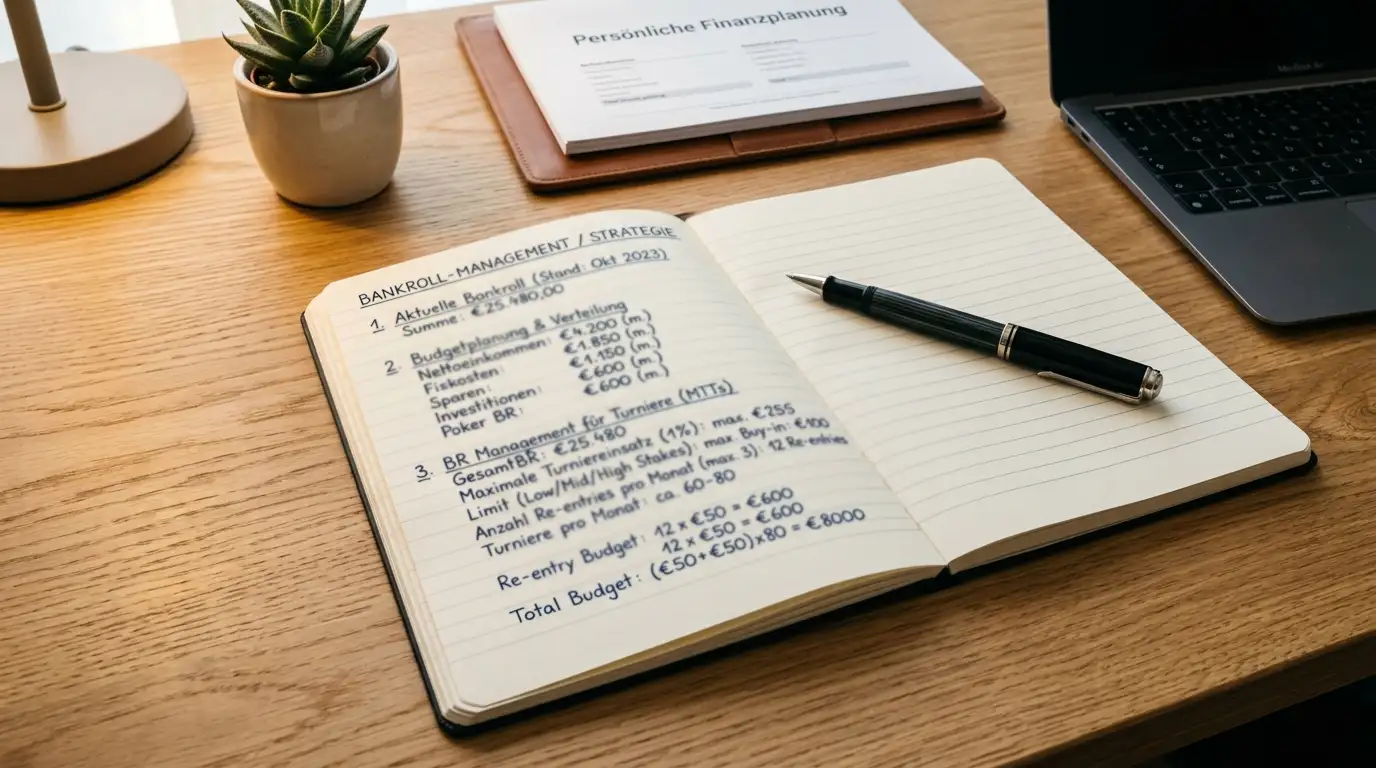 Persönliche Finanzplanung
BANKROLL-MANAGEMENT / STRATEGIE
1. Aktuelle Bankroll (Stand: Okt 2023)
Summe: €25.480,00
2. Budgetplanung & Verteilung
Nettoeinkommen: €4.200 (m.)
Fiskosten: €1.850 (m.)
Sparen: €1.150 (m.)
Investitionen: €600 (m.)
Poker BR: €600 (m.)
3. BR Management für Turniere (MTTs)
GesamtBR: €25.480
Maximale Turniereinsatz (1%): max. €255
Limit (Low/Mid/High Stakes): max. Buy-in: €100
Anzahl Re-entries pro Monat (max. 3): 12 Re-entries
Turniere pro Monat: ca. 60-80
Re-entry Budget: 12 x €50 = €600
12 x €50 = €600
Total Budget: (€50+€50)x80 = €8000